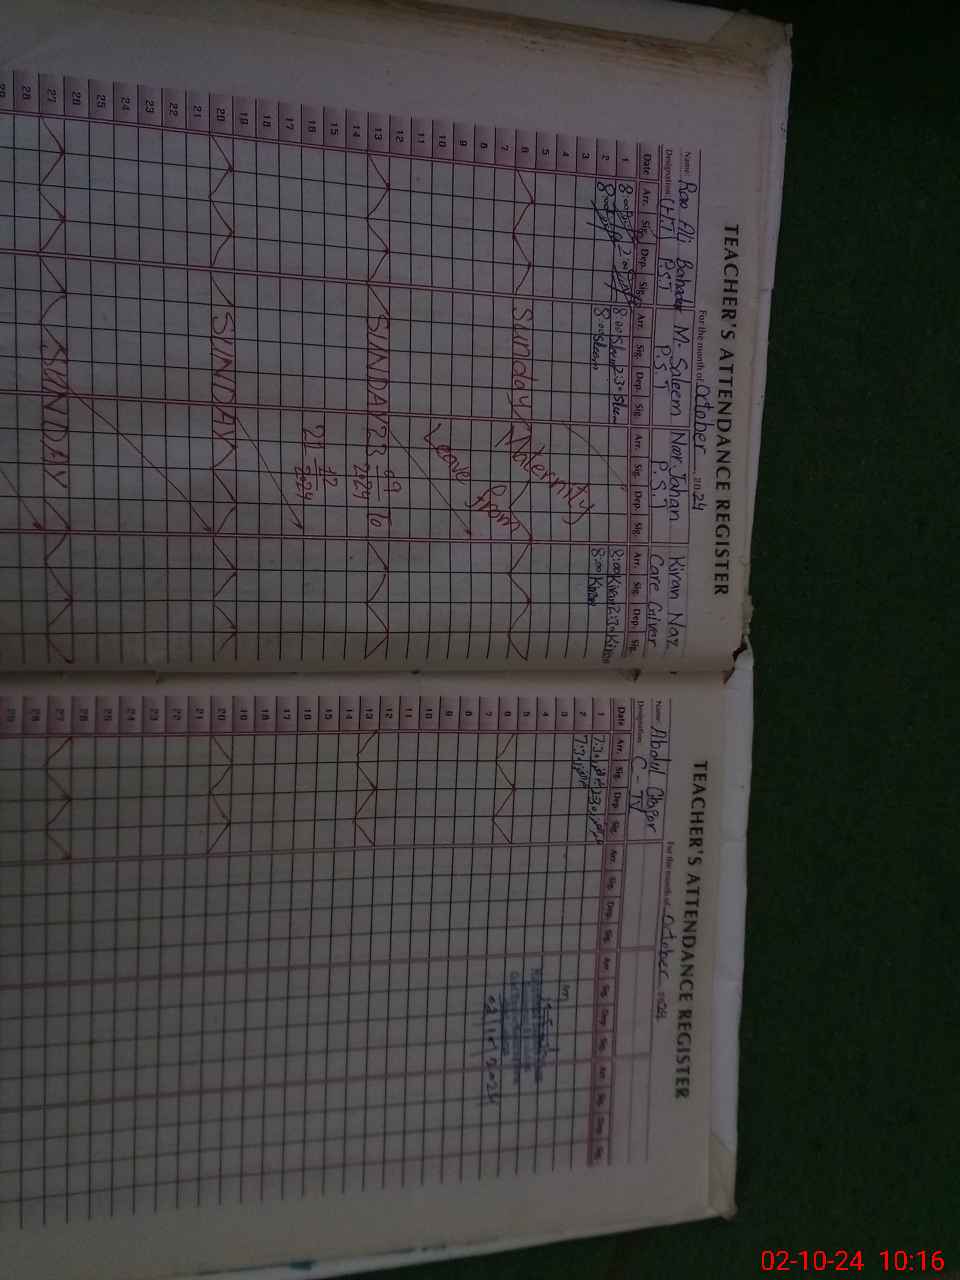 TEACHER'S ATTENDANCE REGISTER
For the month of October 2024
Name: Rao Ali Bahadar M. Saleem Nor Jahan Kiran Naz
Designation P.S.T P.S.T P.S.T Care Giver
Date Arr. Sig. Dep. Sig. Arr. Sig. Dep. Sig. Arr. Sig. Dep. Sig. Arr. Sig. Dep. Sig.
1 8:00 2:00 8:00 Sleem 2:30 Sleem 8:00 Kiran 2:30 Kiran
2 8:00 8:00 Sleem 8:00 Kiran
3
4
5
6 Sunday
7
8
9
10
11
12
13 SUNDAY
14
15
16
17
18
19
20 SUNDAY
21
22
23
24
25
26
27 SUNDAY
28
29
Maternity
Leave from
23 09 2024 to
21 12 2024
TEACHER'S ATTENDANCE REGISTER
For the month of October 2024
Name: Abdul Gafar
Designation C-IV
Date Arr. Sig. Dep. Sig. Arr. Sig. Dep. Sig. Arr. Sig. Dep. Sig. Arr. Sig. Dep. Sig.
1 7:30 2:30
2 7:30
3
4
5
6
7
8
9
10
11
12
13
14
15
16
17
18
19
20
21
22
23
24
25
26
27
28
29
02-10-24 10:16